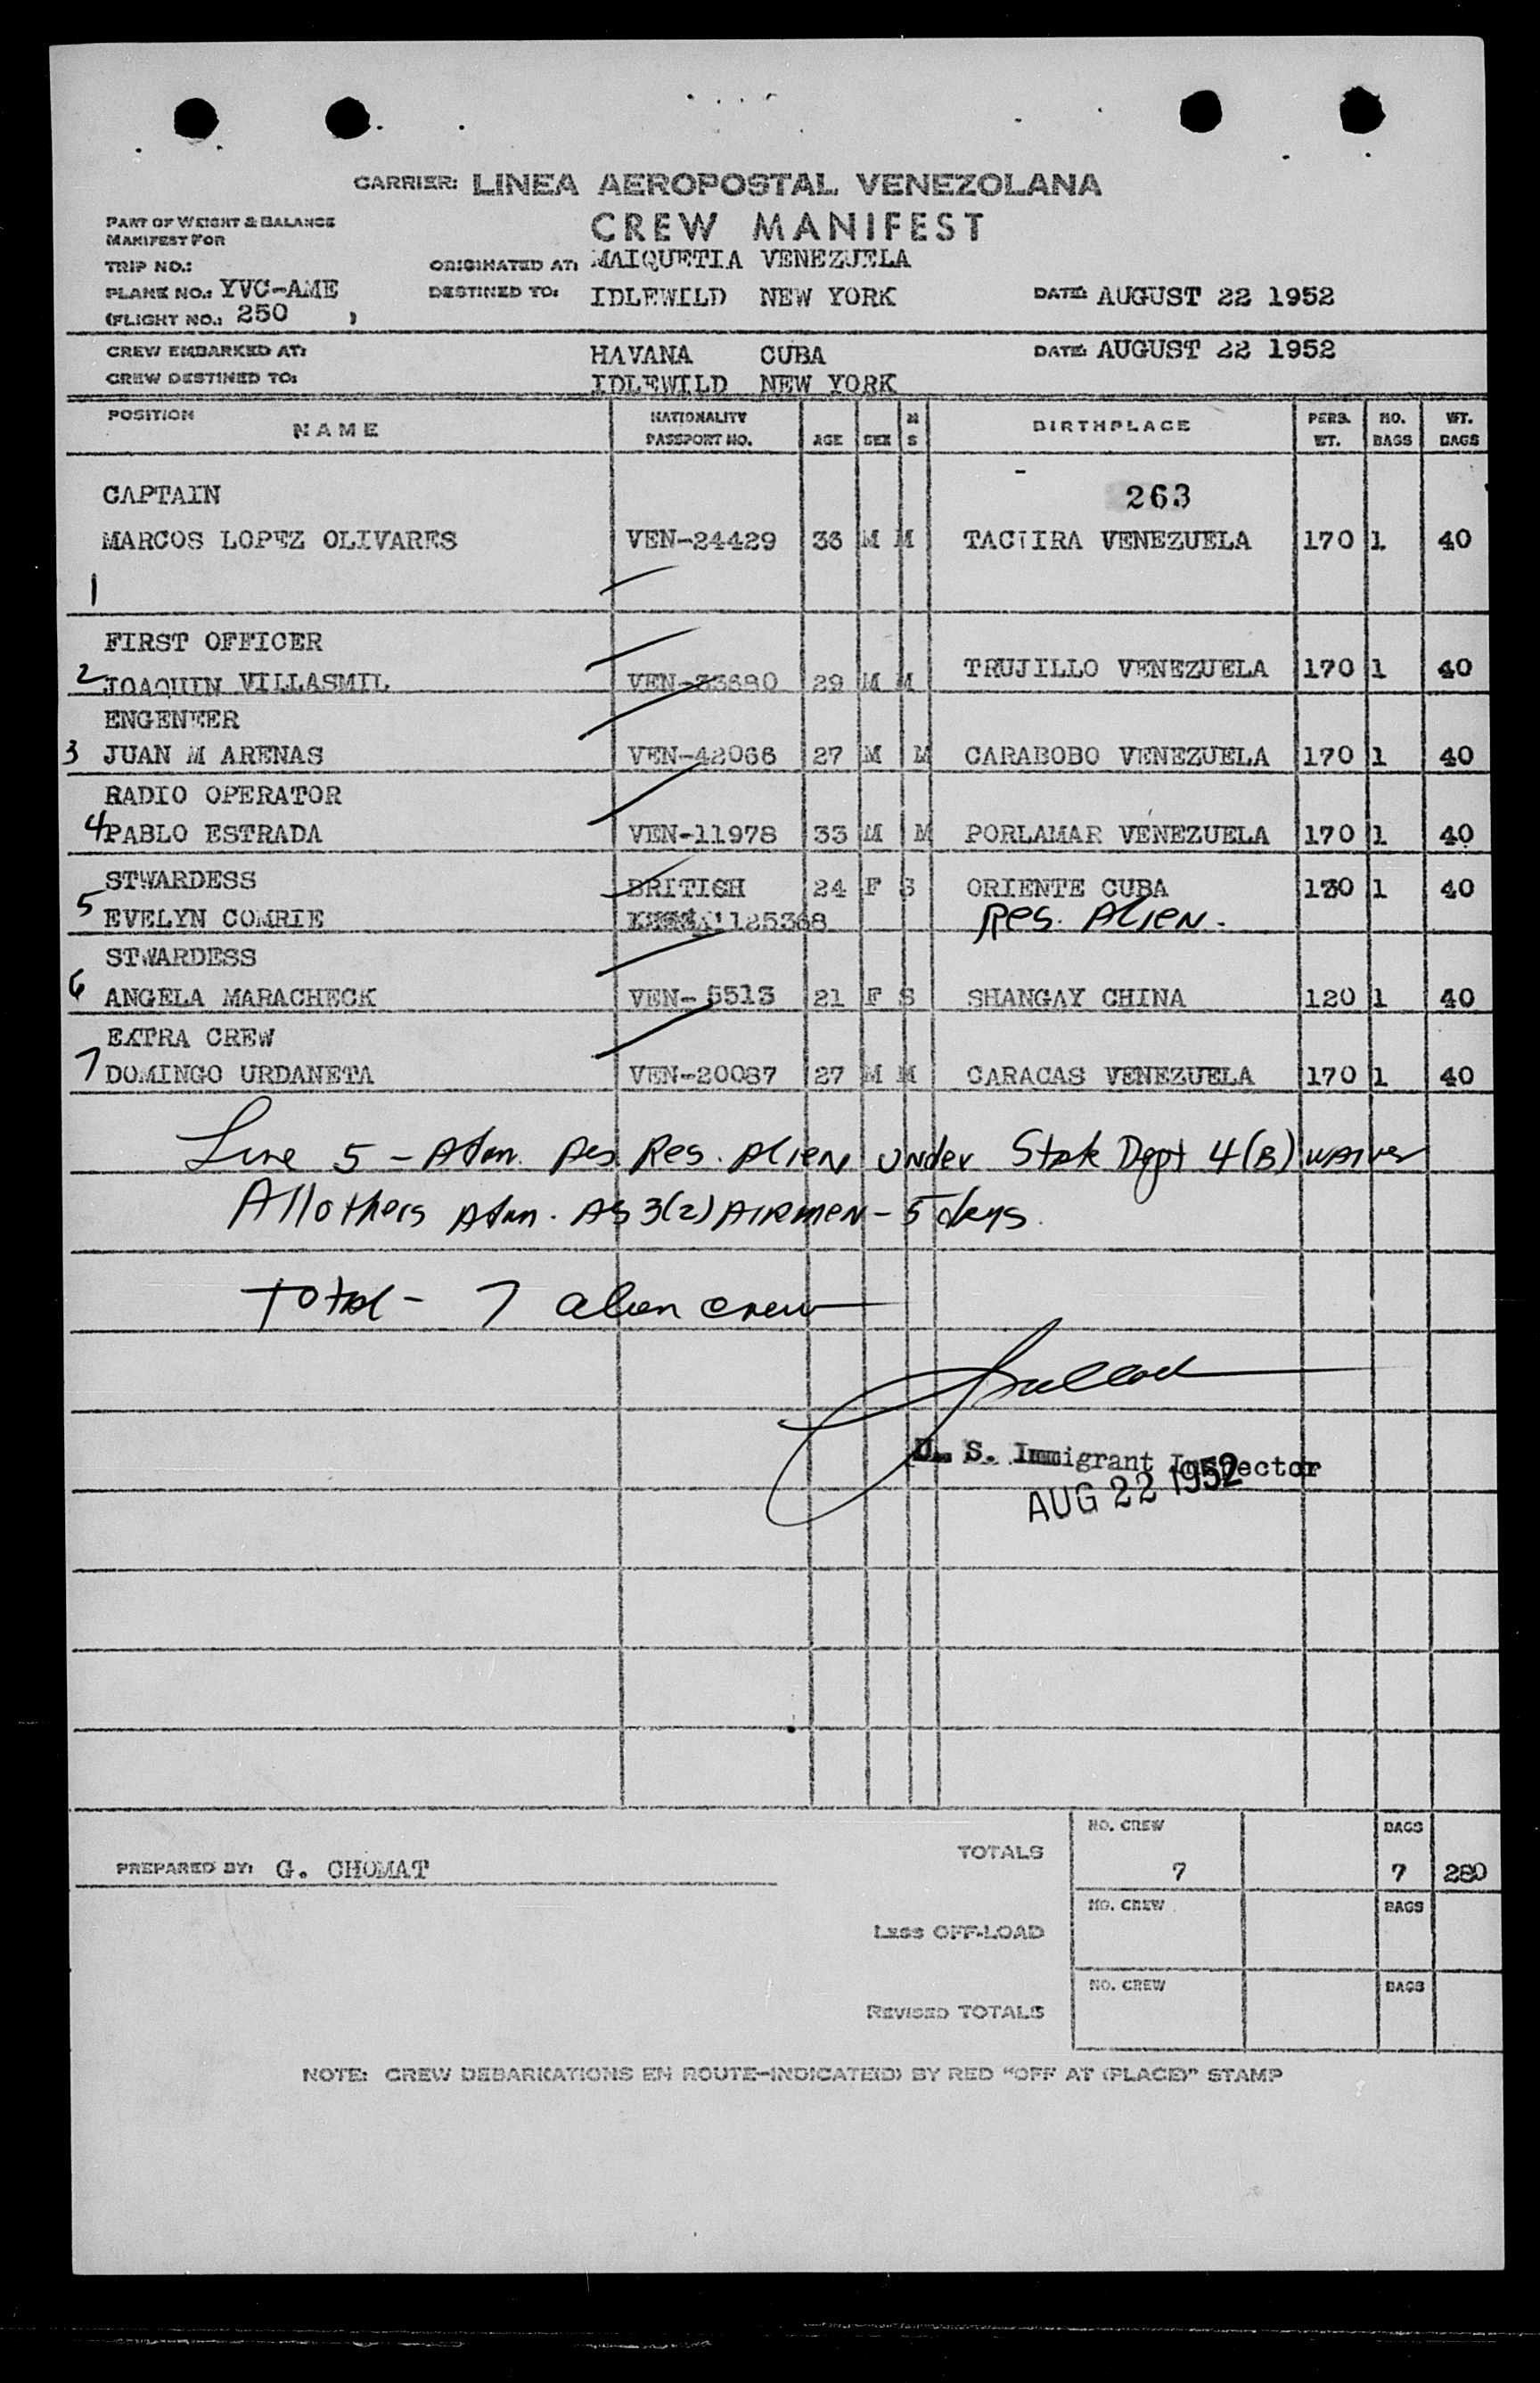 CARRIER: LINEA AEROPOSTAL VENEZOLANA
PART OF WEIGHT & BALANCE
MANIFEST FOR
CREW MANIFEST
TRIP NO.:
ORIGINATED AT: MAIQUETIA VENEZUELA
PLANE NO.: YVC-AME
DESTINED TO: IDLEWILD NEW YORK DATE: AUGUST 22 1952
(FLIGHT NO.: 250 )
CREW EMBARKED AT: HAVANA CUBA DATE: AUGUST 22 1952
CREW DESTINED TO: IDLEWILD NEW YORK
POSITION NAME NATIONALITY PASSPORT NO. AGE SEX M S BIRTHPLACE PERS. WT. NO. BAGS WT. BAGS
CAPTAIN 263
MARCOS LOPEZ OLIVARES VEN-24429 36 M M TACHIRA VENEZUELA 170 1 40
1
FIRST OFFICER
2 JOAQUIN VILLASMIL VEN-33680 29 M M TRUJILLO VENEZUELA 170 1 40
ENGENEER
3 JUAN M ARENAS VEN-42066 27 M M CARABOBO VENEZUELA 170 1 40
RADIO OPERATOR
4 PABLO ESTRADA VEN-11978 33 M M PORLAMAR VENEZUELA 170 1 40
STWARDESS BRITISH 24 F S ORIENTE CUBA 130 1 40
5 EVELYN COMRIE 125368 Res. Alien.
STWARDESS
6 ANGELA MARACHECK VEN- 5513 21 F S SHANGAY CHINA 120 1 40
EXTRA CREW
7 DOMINGO URDANETA VEN-20087 27 M M CARACAS VENEZUELA 170 1 40
Line 5 - Adm. As Res. Alien under State Dept 4(B) waiver
All others Adm. As 3(2) Airmen - 5 days.
Total - 7 alien crew
U. S. Immigrant Inspector
AUG 22 1952
TOTALS NO. CREW 7 BAGS 7 280
PREPARED BY: G. CHOMAT
LESS OFF-LOAD NO. CREW BAGS
REVISED TOTALS NO. CREW BAGS
NOTE: CREW DEBARKATIONS EN ROUTE-INDICATE(D) BY RED "OFF AT (PLACE)" STAMP